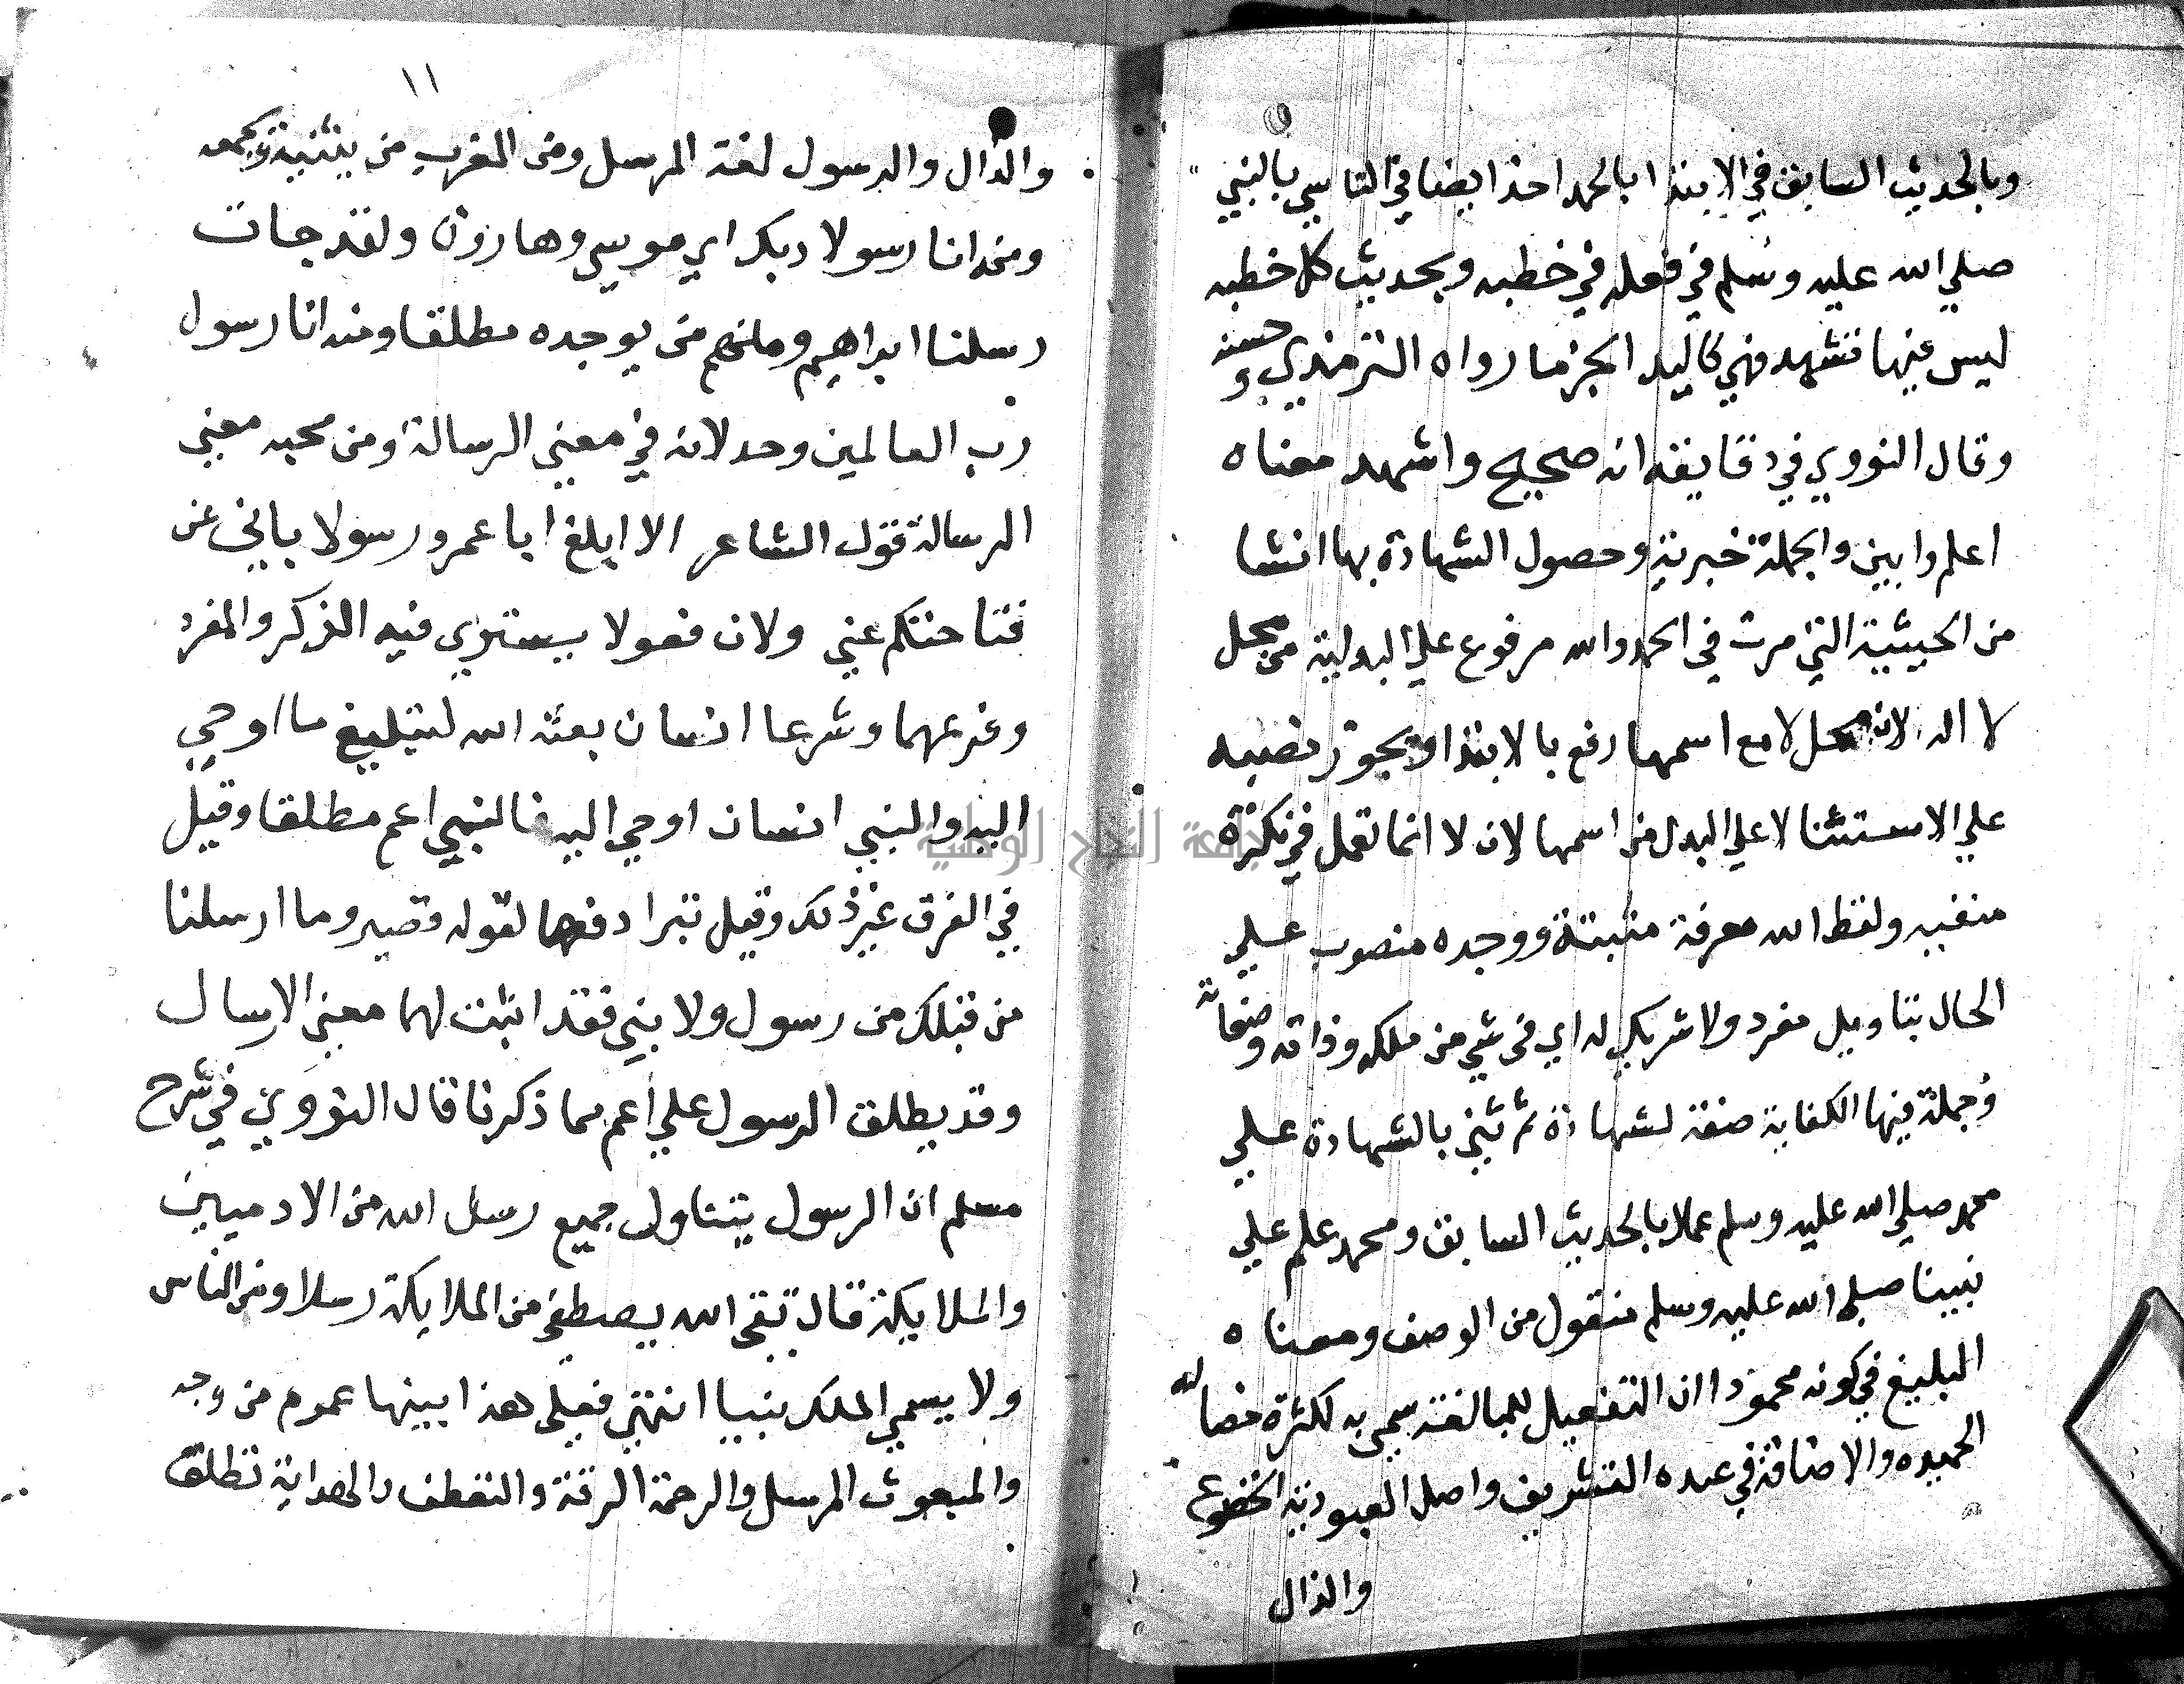 وبالحديث السابق في الابتدا بالحمد اخذا ايضا في التاسي بالنبي
صلي الله عليه وسلم في فعله في خطبه وبحديث كل خطبه
ليس فيها تشهد فهي كاليد الجزما رواه الترمذي وحسنه
وقال النووي في دقايقه انه صحيح واشهد معناه
اعلم وابين والجملة خبرية وحصول الشهادة بها انشا
من الحيثية التي مرت في الحمد والله مرفوع علي البدلية من محل
لا اله لان محل لا مع اسمها رفع بالابتدا ويجوز نصبه
علي الاستثنا لا علي البدل من اسمها لان لا انما تعمل في نكرة
منفيه ولفظ الله معرفة مثبتة ووحده منصوب علي
الحال بتاويل مفرد ولا شريك له اي في شي من ملكه وذاته وصفاته
وجملة فيها الكفاية صفة لشهادة ثم ثني بالشهادة علي
محمد صلي الله عليه وسلم عملا بالحديث السابق ومحمد علم علي
نبينا صلي الله عليه وسلم منقول من الوصف ومعناه
البليغ في كونه محمودا ان التفعيل للمبالغة سمي به لكثرة خصاله
الحميده والاضافة في عبده التشريف واصل العبودية الخضوع
والذال
١١
والذال والرسول لغة المرسل ومن العرب من يثنيه ويجمعه
ومنه انا رسولا ربك اي موسي وهارون ولقد جات
رسلنا ابراهيم ومنهم من يوحده مطلقا ومنه انا رسول
رب العالمين وحد لانه في معني الرسالة ومن مجيه معني
الرسالة قول الشاعر الا ابلغ ابا عمرو رسولا باني عن
فتاحتكم غني ولان فعولا يستوي فيه الذكر والمفرد
وغيرهما وشرعا انسان بعثه الله لتبليغ ما اوحي
اليه والنبي انسان اوحي اليه فالنبي اعم مطلقا وقيل
في الفرق غير ذلك وقيل بترادفهما لقوله وما ارسلنا
من قبلك من رسول ولا نبي فقد اثبت لهما معني الارسال
وقد يطلق الرسول علي اعم مما ذكرنا قال النووي في شرح
مسلم ان الرسول يتناول جميع رسل الله من الادميين
والملايكة قال تعالى الله يصطفي من الملايكة رسلا ومن الناس
ولا يسمي الملك نبيا انتهي فعلي هذا بينها عموم من وجه
والمبعوث المرسل والرحمة الرقة والتعطف والهداية تطلق
جامعة النجاح الوطنية